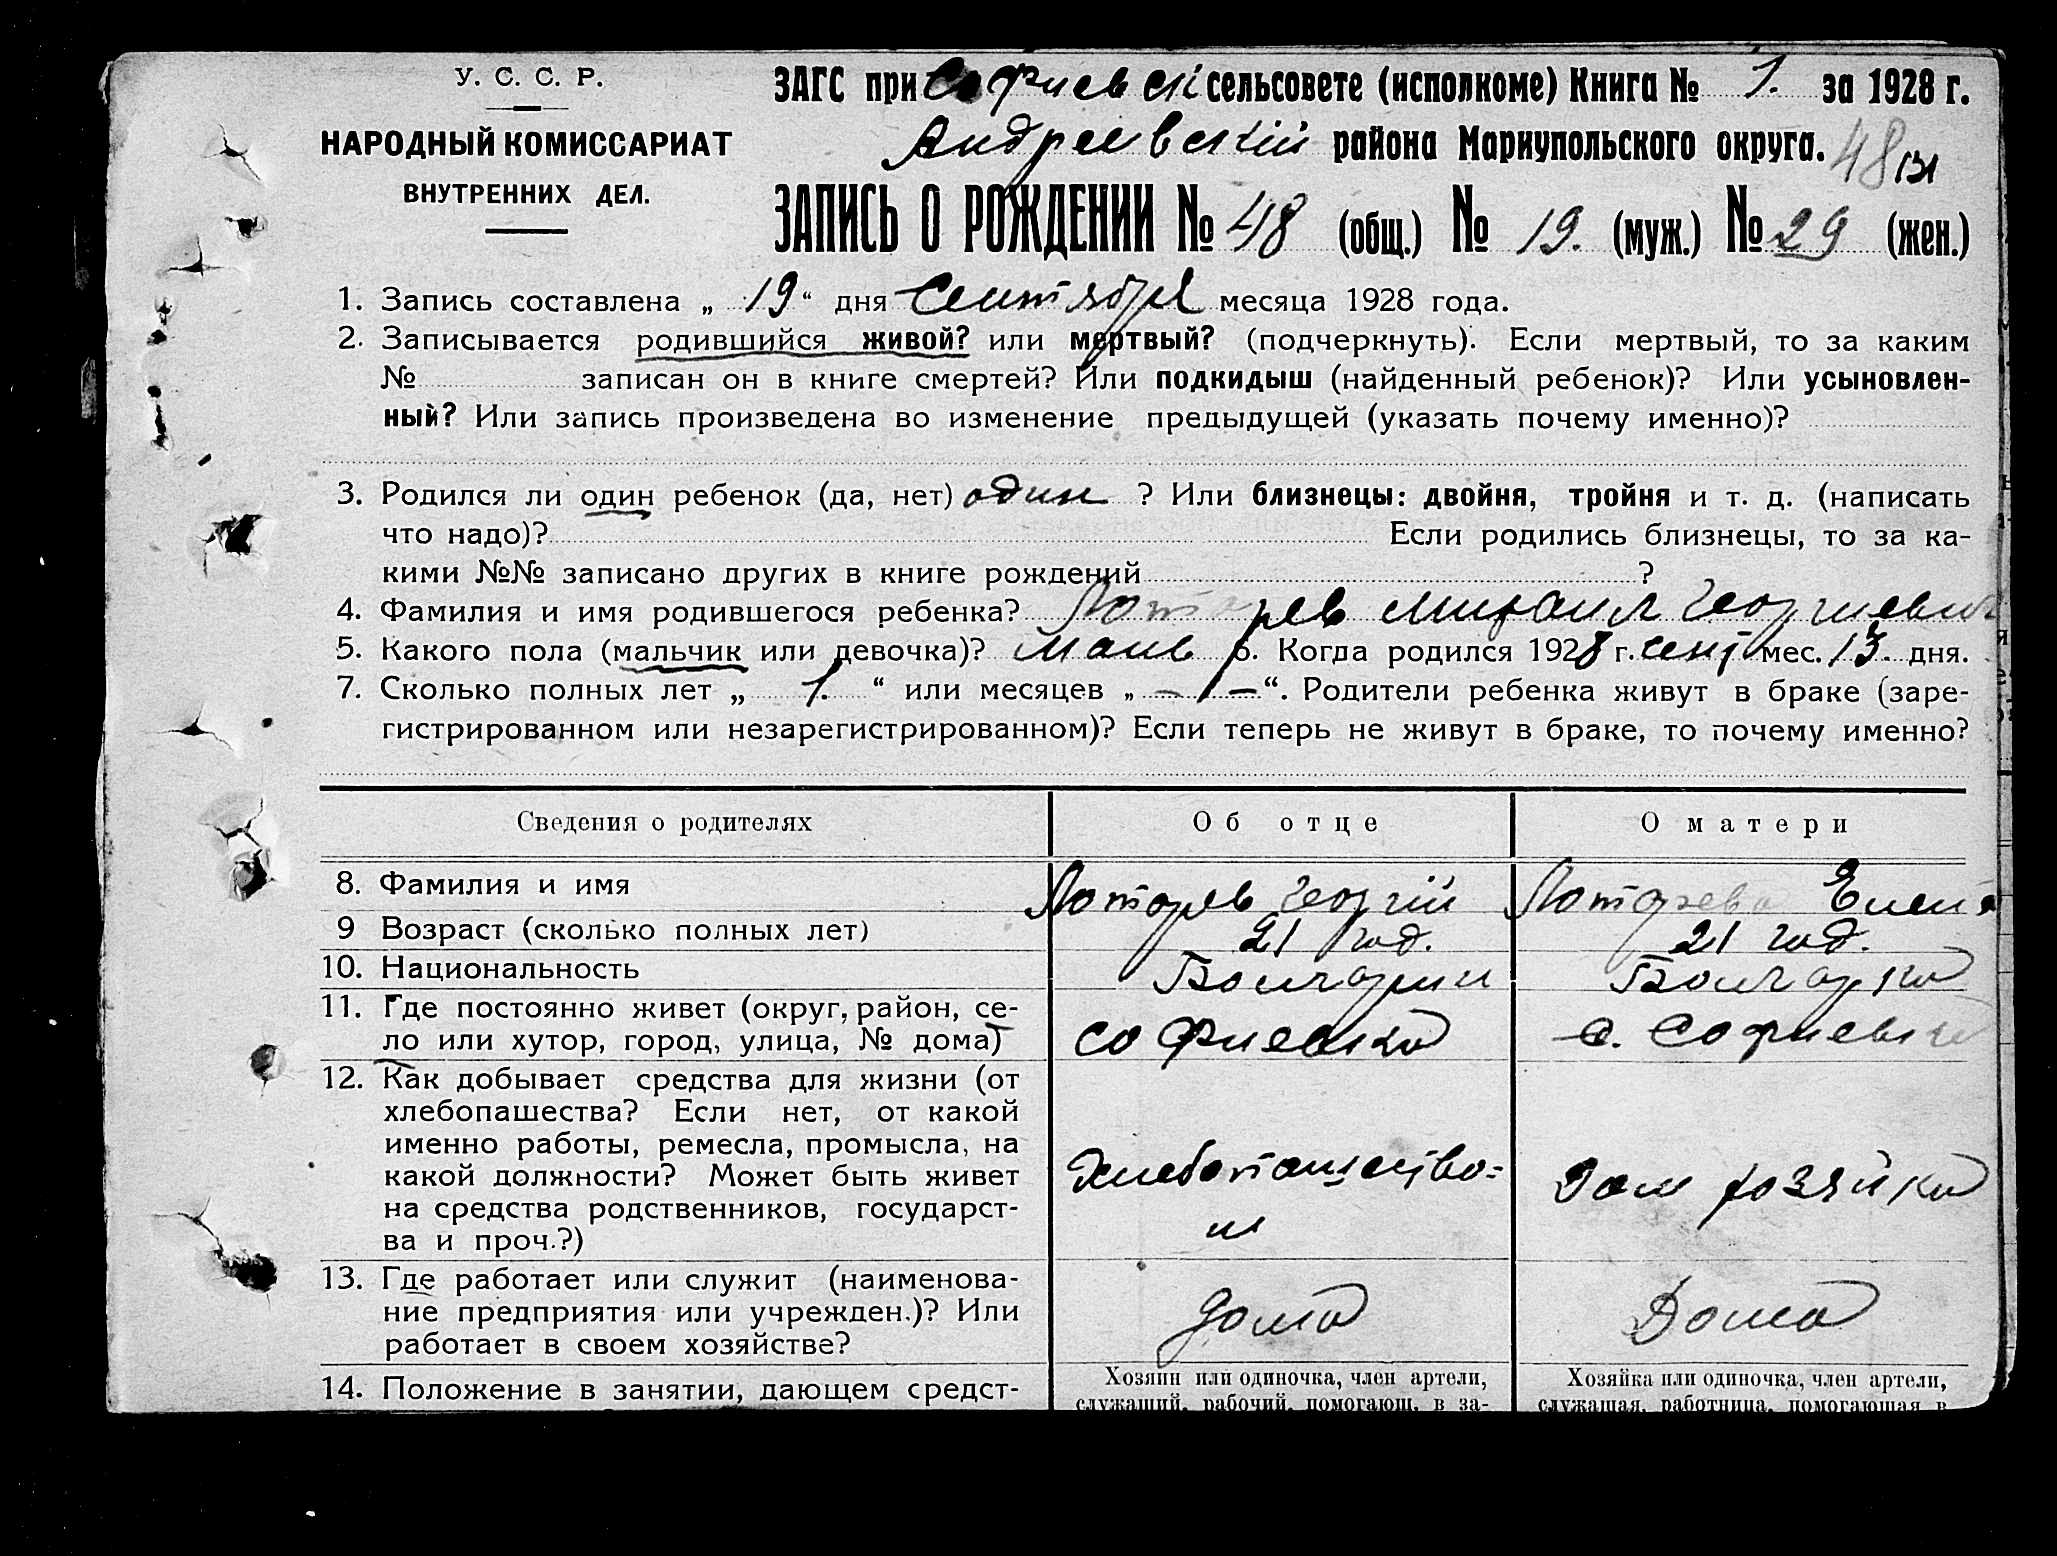 У. С. С. Р.
НАРОДНЫЙ КОМИССАРИАТ
ВНУТРЕННИХ ДЕЛ.
ЗАГС при Софиевскі сельсовете (исполкоме) Книга № 1. за 1928 г.
Андреевскій района Мариупольского округа. 48
ЗАПИСЬ О РОЖДЕНИИ № 48 (общ.) № 19. (муж.) № 29 (жен.)
1. Запись составлена „ 19 “ дня Сентября месяца 1928 года.
2. Записывается родившийся живой? или мертвый? (подчеркнуть). Если мертвый, то за каким
№ записан он в книге смертей? Или подкидыш (найденный ребенок)? Или усыновлен-
ный? Или запись произведена во изменение предыдущей (указать почему именно)?
3. Родился ли один ребенок (да, нет) один ? Или близнецы: двойня, тройня и т. д. (написать
что надо)? Если родились близнецы, то за ка-
кими №№ записано других в книге рождений ?
4. Фамилия и имя родившегося ребенка? Лотарев Михаил Георгиевич
5. Какого пола (мальчик или девочка)? маль 6. Когда родился 1928 г. сент мес. 13. дня.
7. Сколько полных лет „ 1. “ или месяцев „ — “. Родители ребенка живут в браке (заре-
гистрированном или незарегистрированном)? Если теперь не живут в браке, то почему именно?
Сведения о родителях Об отце О матери
8. Фамилия и имя Лотарев Георгій Лотарева Елена
9 Возраст (сколько полных лет) 21 год. 21 год.
10. Национальность Болгарин Болгарка
11. Где постоянно живет (округ, район, се-
ло или хутор, город, улица, № дома) Софиевка с. Софиевка
12. Как добывает средства для жизни (от
хлебопашества? Если нет, от какой
именно работы, ремесла, промысла, на
какой должности? Может быть живет
на средства родственников, государст-
ва и проч.?)
Хлебопашество-
м
Дом хозяйка
13. Где работает или служит (наименова-
ние предприятия или учрежден.)? Или
работает в своем хозяйстве?
дома Дома
14. Положение в занятии, дающем средст-
Хозяин или одиночка, член артели,
служащий, рабочий, помогающ. в за-
Хозяйка или одиночка, член артели,
служащая, работница, помогающая в